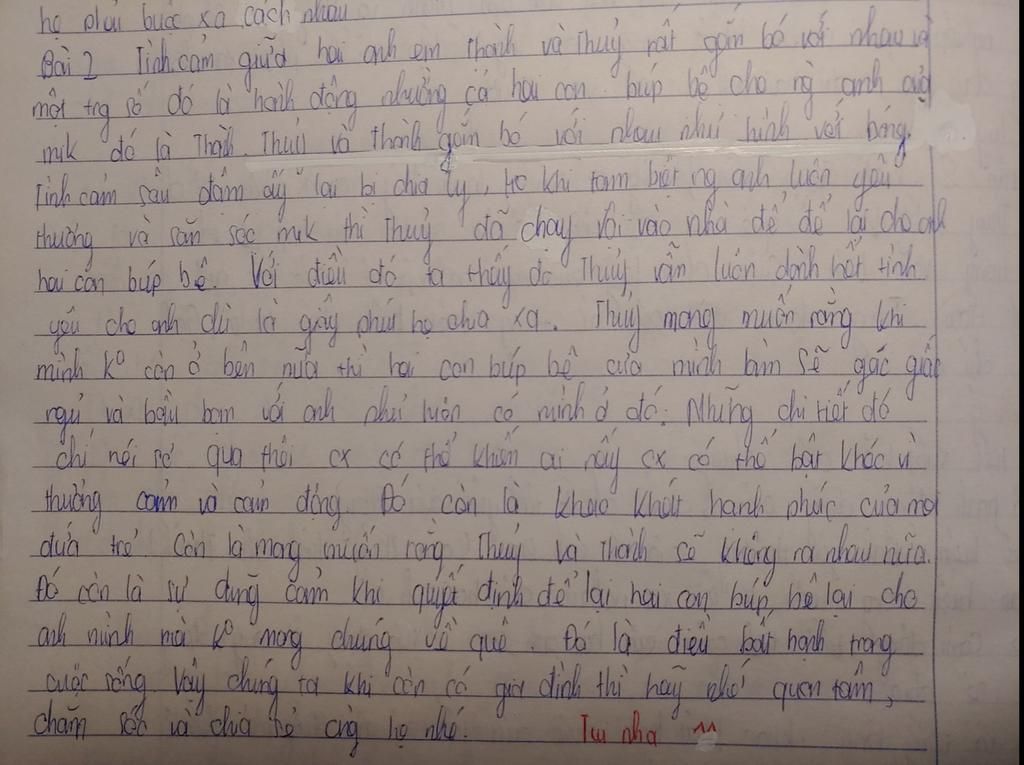 họ phải buộc xa cách nhau
Bài 2 Tình cảm giữa hai anh em Thành và Thuỷ rất gắn bó với nhau và
một trg số đó là hành động nhường cả hai con búp bê cho ng anh của
mik đó là Thành. Thuỷ và Thành gắn bó với nhau như hình với bóng.
Tình cảm sâu đậm ấy lại bị chia ly, khi tạm biệt ng anh luôn yêu
thương và săn sóc mik thì Thuỷ đã chạy vội vào nhà để để lại cho anh
hai con búp bê. Với điều đó ta thấy đc Thuỷ vẫn luôn dành hết tình
yêu cho anh dù là giây phút họ chia xa. Thuỷ mong muốn rằng khi
mình k° còn ở bên nữa thì hai con búp bê của mình sẽ gác giấc
ngủ và bầu bạn với anh như luôn có mình ở đó. Những chi tiết đó
chỉ nói sơ qua thôi cx có thể khiến ai nấy cx có thể bật khóc vì
thương cảm và cảm động. Đó còn là khao khát hạnh phúc của mọi
đứa trẻ. Còn là mong muốn rằng Thuỷ và Thành sẽ không xa nhau nữa.
Đó còn là sự dũng cảm khi quyết định để lại hai con búp bê lại cho
anh mình mà k° mang chúng về quê. Đó là điều bất hạnh trong
cuộc sống. Vậy chúng ta khi còn có gia đình thì hãy nhớ quan tâm,
chăm sóc và chia sẻ cùng họ nhé. Tym nha ^^